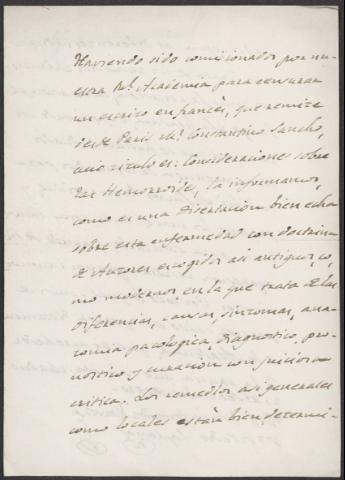 Haviendo sido comisionados por nu-
estra Rl. Academia para censurar
un escrito en francés, que remite
desde Paris Dn. Constantino Sancho,
cuio titulo es: Consideraciones sobre
las Hemorroide, la informamos,
como es una disertacion bien echa
sobre esta enfermedad con doctrina
de Autores escogidos asi antiguos, co,
mo modernos en la que trata de las
diferencias, causas, sintomas, ana-
tomia patologica, diagnostico, pro-
nostico y curacion con juiciosa
critica. Los remedios asi generales
como locales están bien determi-